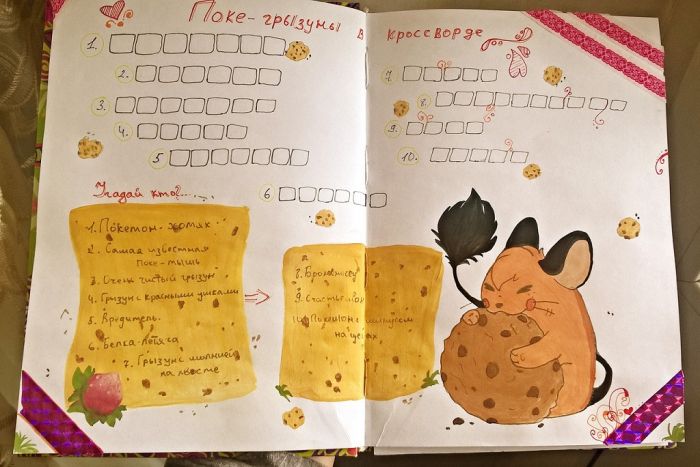 Поке-грызуны в кроссворде
1.
2.
3.
4.
5
6
7.
8.
9.
10.
Угадай кто?...
1. Покемон-хомяк
2. Самая известная
поке-мышь
3. Очень чистый грызун
4. Грызун с красными ушками
5. Вредитель.
6. Белка-летяга
7. Грызун с молнией
на хвосте
8.
9.
10. Покемон с
на щеках